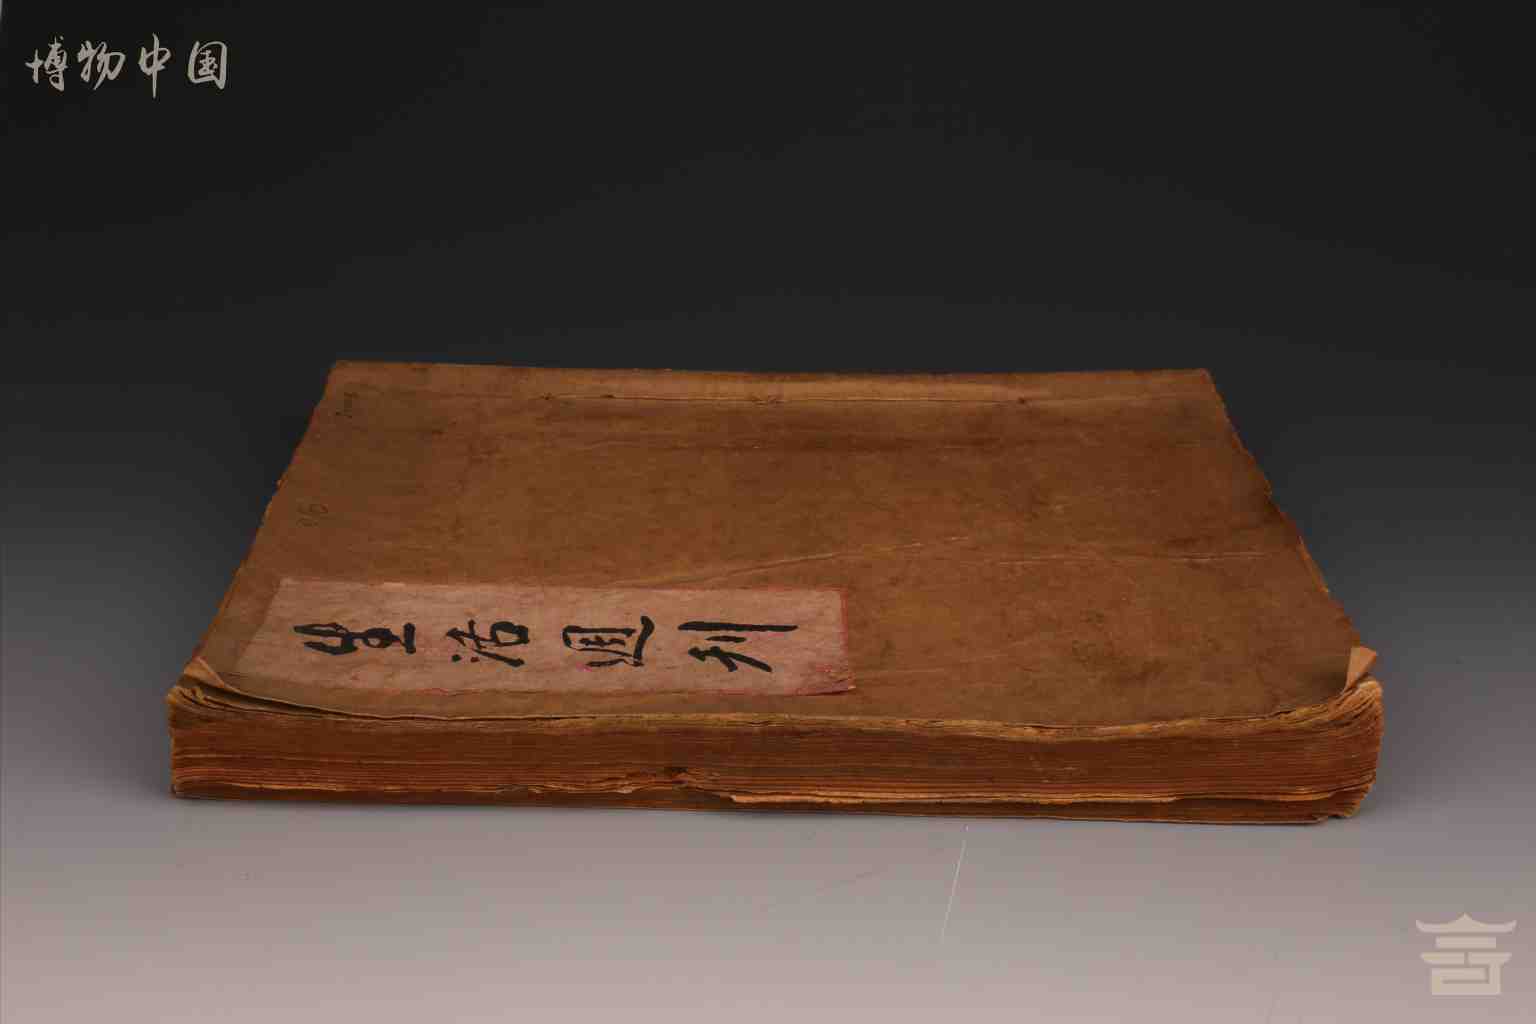 博物中国
生活週刊